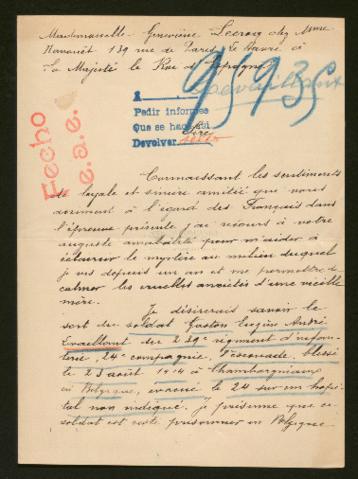 Mademoiselle Geneviève Lecroq chez Mme
139 rue de Paris le Havre à
Sa Majesté le Roi d'Espagne
95935
A
Pedir informes
Que se haga
Devolver
Hecho
e.a.e.
Sire
Connaissant les sentiments
de loyale et sincère amitié que vous
avez à l'égard des Français dans
l'épreuve présente j'ai recours à votre
auguste amabilité pour m'aider à
éclaircir le mystère au milieu duquel
je vis depuis un an et me permettre de
calmer les cruelles anxiétés d'une vieille
mère.
Je désirerais savoir le
sort du soldat Gaston Eugène André
Levaillant du 239e régiment d'infan-
terie, 24e compagnie, escouade, blessé
le 23 août 1914 à
en Belgique, évacué le 24 sur un hôpi-
tal non indiqué. je présume que ce
soldat est resté prisonnier en Belgique